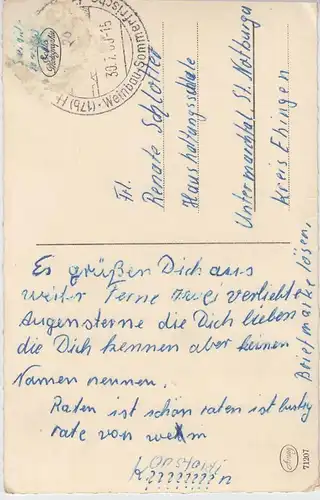 30.7.60-15
Wemding-Sommerfrische
(17b)
Frl.
Renate Schlotter
Haushaltungsschule
Untermarchtal, St. Notburga
Kreis Ehingen
Es grüßen Dich aus
weiter Ferne zwei verliebte
Augensterne die Dich lieben
die Dich kennen aber keinen
Namen nennen.
Raten ist schön raten ist lustig
rate von wem
Briefmarke lösen.
71207